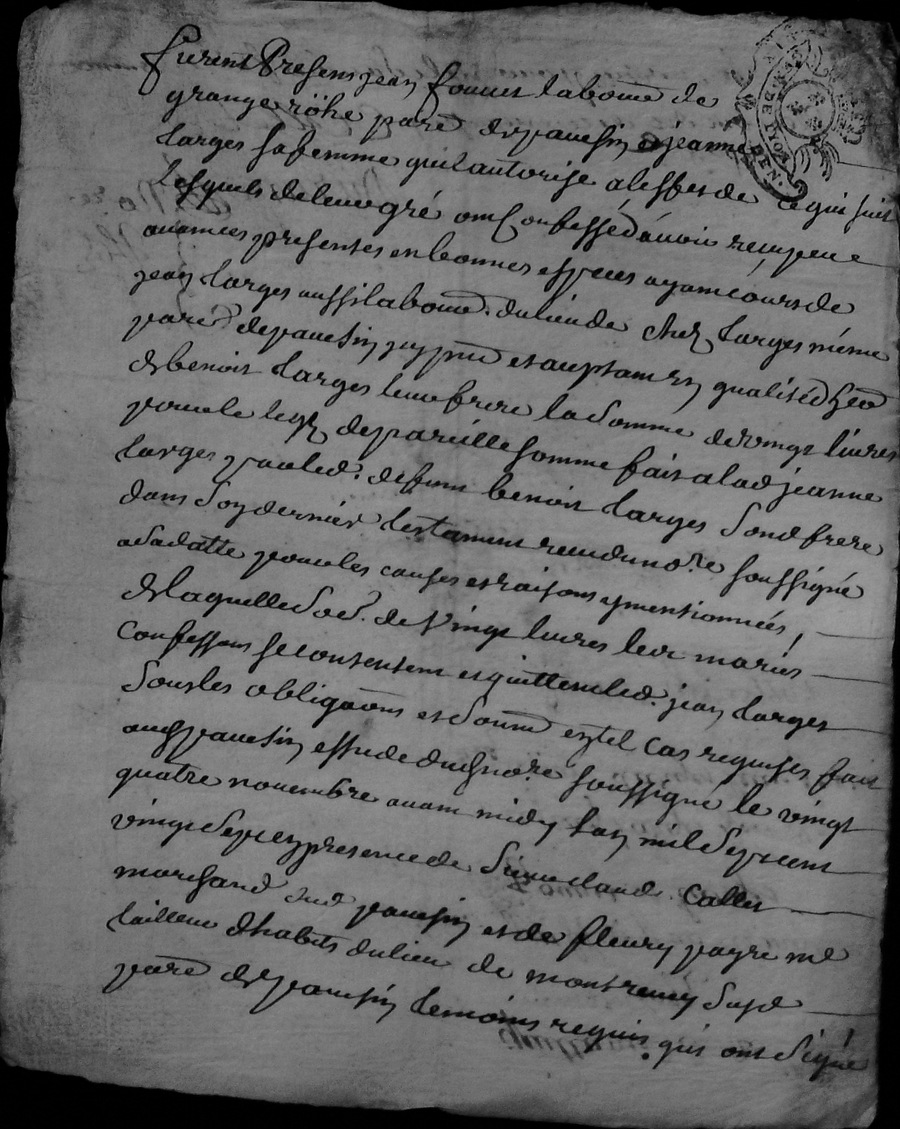 furent Presens jean fournet laboure de
grange röhe paro depauesin & jeanne
larges sa femme quil autorise a leffet de ce qui suit
lesquels de leur gré ont Confessé dauoir reçu peu
auant ces presentes en bonnes especes ayant cours de
jean larges aussi laboure. du lieu de chez larges méme
paro depauesin y pnt et aceptant En qualité d'here
de benoit larges leur frere la Somme de vingt liures
pour le legs de pareille somme fait a lad jeanne
larges par led. defunt benoit larges Son d frere
dans Son dernier testament receu du nore soussigné
a Sa datte pour les causes et raisons y mentionnées,
de laquelle Sod. de Vingt liures lesd mariés
Confessans se contentent et quittent led. jean larges
Sous les obligaons et Soum en tel Cas requises fait
audpauesin estude du nore soussigné le vingt
quatre nouembre auant midy lan mil Sept cent
vingt Sept en presence de Sieur claud Callet
marchand dud pauesin et de fleury payre me
tailleur dhabits du lieu de montremy Susd
paro de pauesin temoins requis qui ont Signé
DE LYON
GEN.